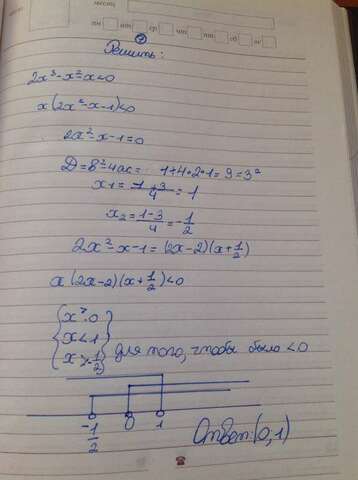 месяц
пн вт ср чт пт сб вс
②
Решить:
2x³-x²-x<0
x(2x²-x-1)<0
2x²-x-1=0
D=B²-4ac= 1+4*2*1=9=3²
x1=(1+3)/4=1
x₂=(1-3)/4=-1/2
2x²-x-1=(2x-2)(x+1/2)
x(2x-2)(x+1/2)<0
{x>0
{x<1
{x>-1/2) для того, чтобы было <0
-1/2 0 1
Ответ:(0,1)